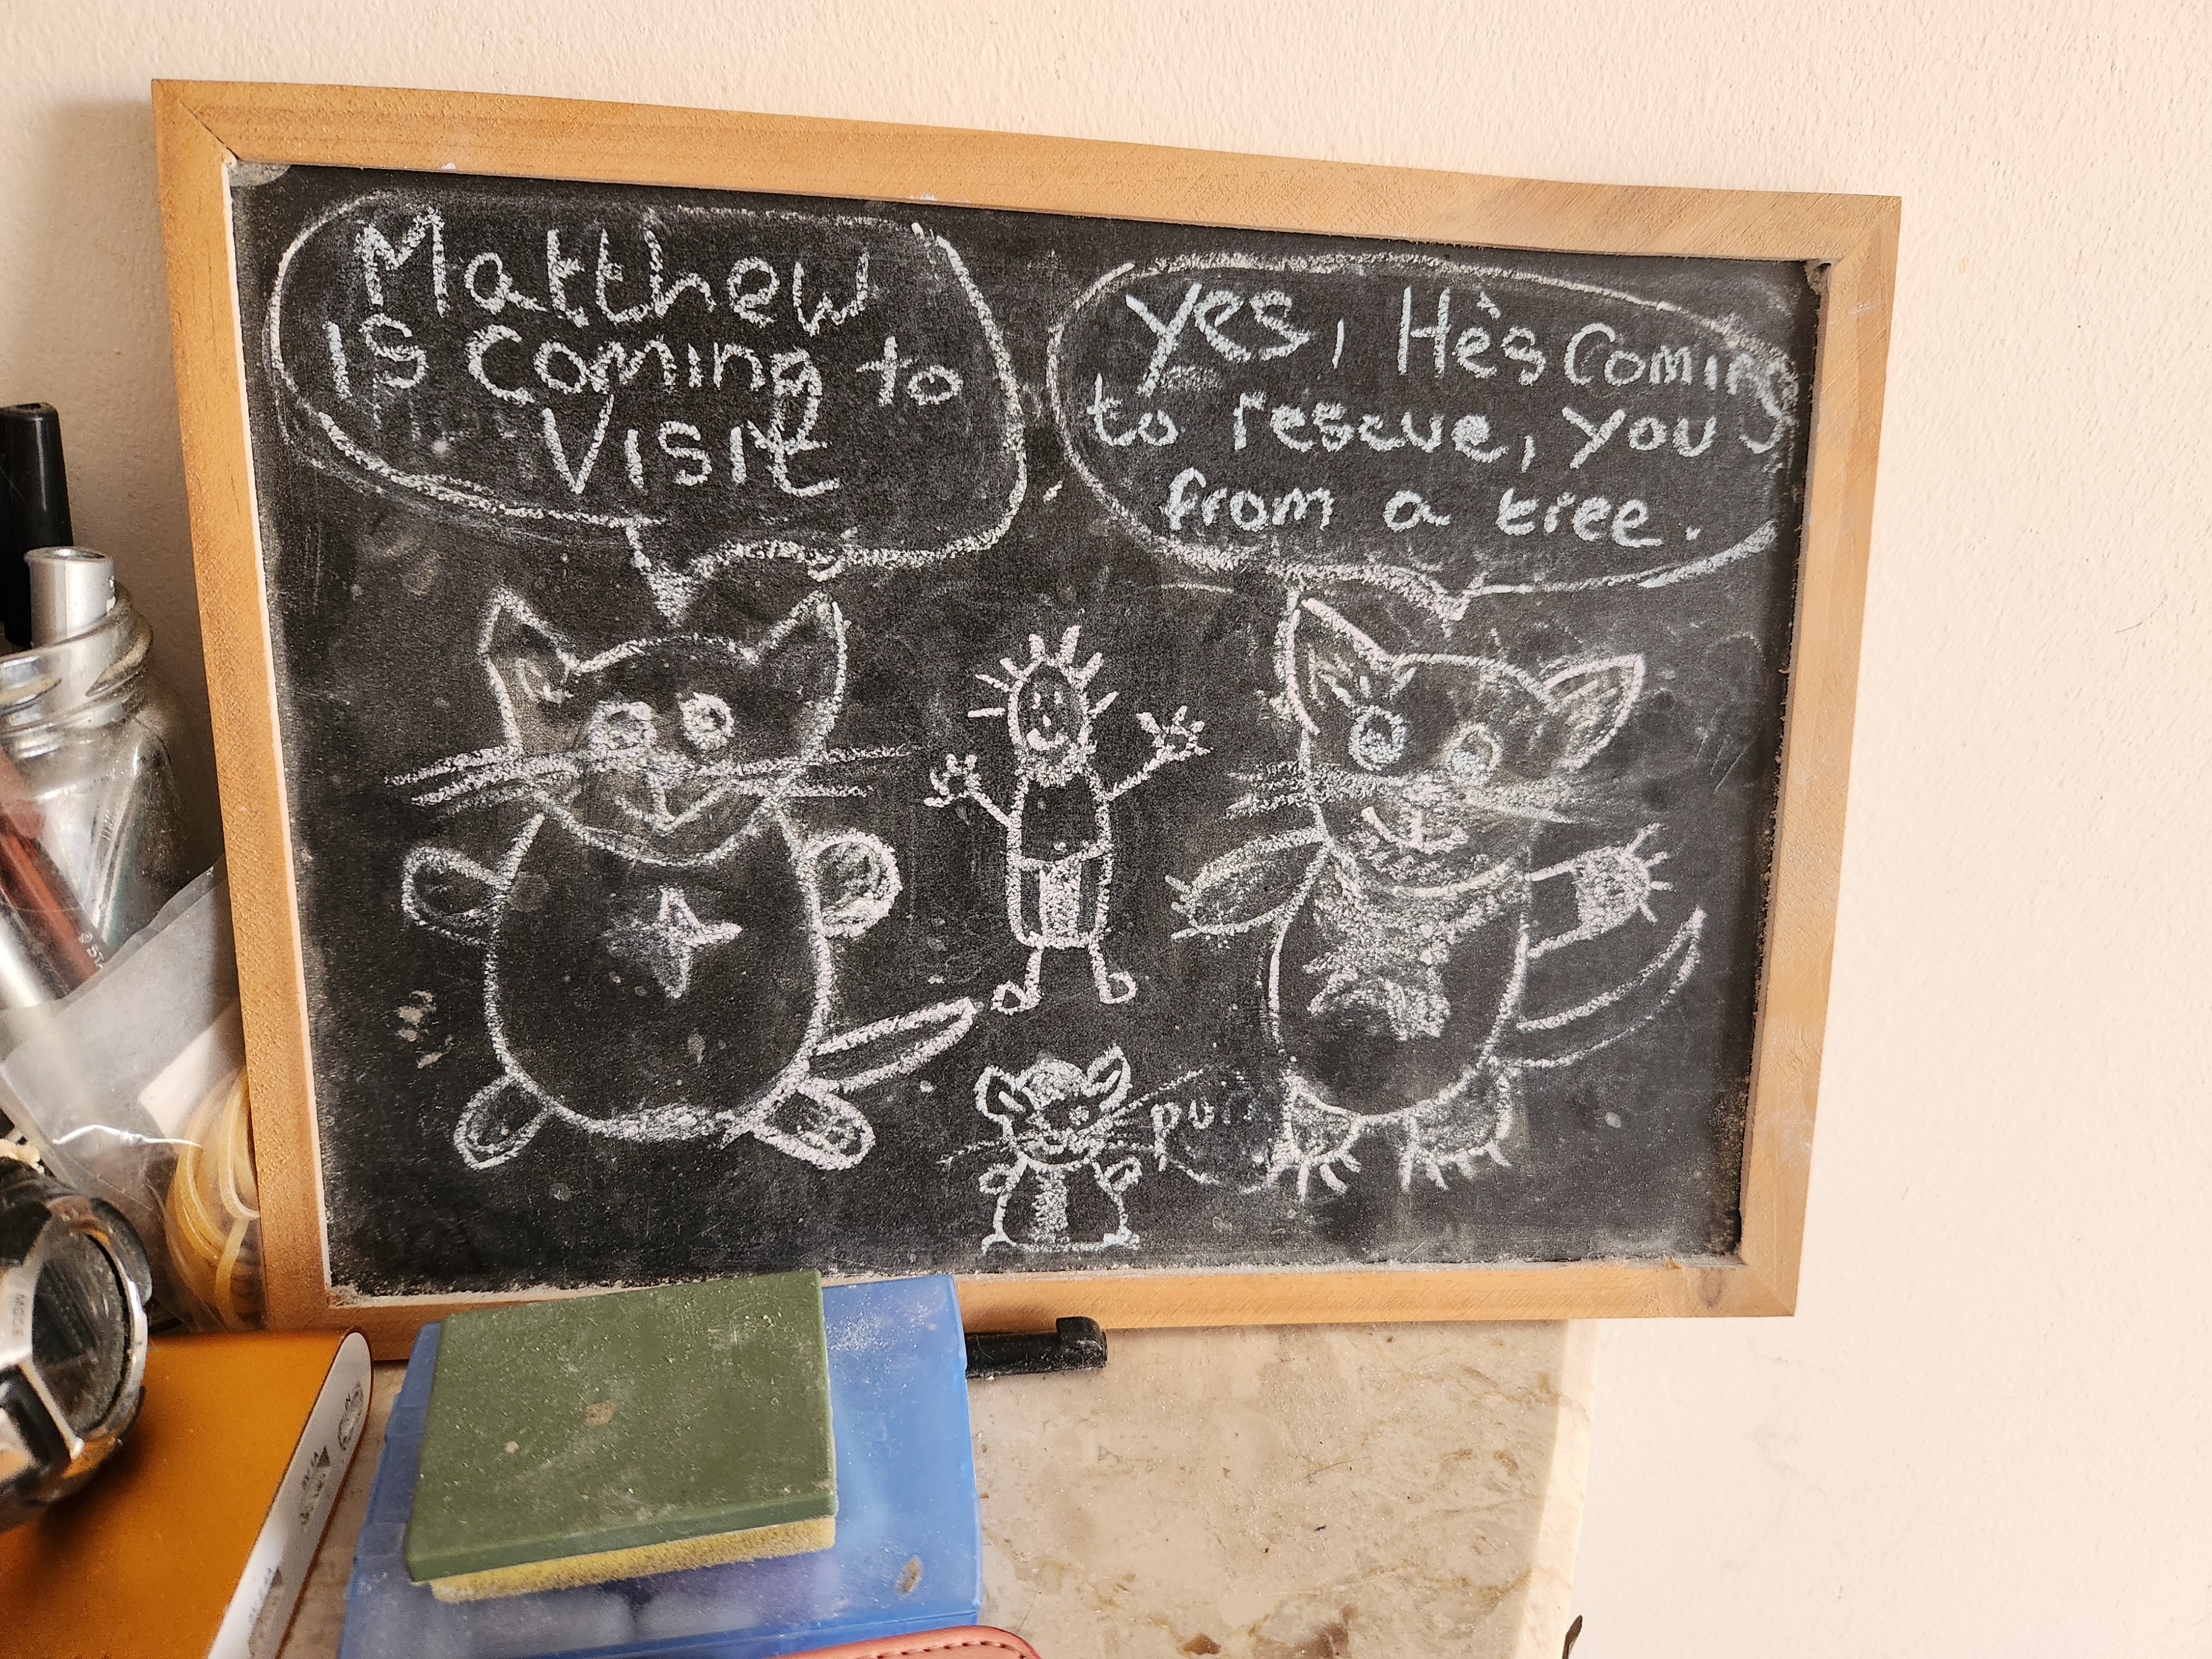 Matthew
is coming to
Visit
Yes, He's Coming
to rescue, you
from a tree.